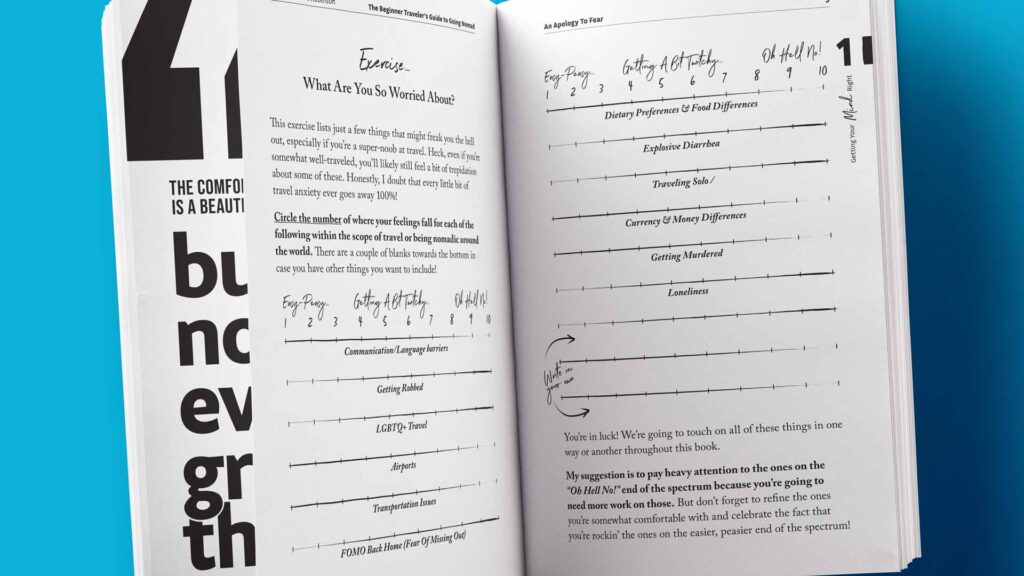 The Beginner Traveler's Guide to Going Nomad
THE COMFOR
IS A BEAUTI
bu
no
ev
gr
th
Exercise...
What Are You So Worried About?
This exercise lists just a few things that might freak you the hell
out, especially if you're a super-noob at travel. Heck, even if you're
somewhat well-traveled, you'll likely still feel a bit of trepidation
about some of these. Honestly, I doubt that every little bit of
travel anxiety ever goes away 100%!
Circle the number of where your feelings fall for each of the
following within the scope of travel or being nomadic around
the world. There are a couple of blanks towards the bottom in
case you have other things you want to include!
Easy-Peasy... Getting A Bit Twitchy... Oh Hell No!
1 2 3 4 5 6 7 8 9 10
Communication/Language barriers
Getting Robbed
LGBTQ+ Travel
Airports
Transportation Issues
FOMO Back Home (Fear Of Missing Out)
An Apology To Fear
Easy-Peasy... Getting A Bit Twitchy... Oh Hell No!
1 2 3 4 5 6 7 8 9 10
Dietary Preferences & Food Differences
Explosive Diarrhea
Traveling Solo /
Currency & Money Differences
Getting Murdered
Loneliness
Write in
your own
You're in luck! We're going to touch on all of these things in one
way or another throughout this book.
My suggestion is to pay heavy attention to the ones on the
"Oh Hell No!" end of the spectrum because you're going to
need more work on those. But don't forget to refine the ones
you're somewhat comfortable with and celebrate the fact that
you're rockin' the ones on the easier, peasier end of the spectrum!
1
Getting Your Mind Right